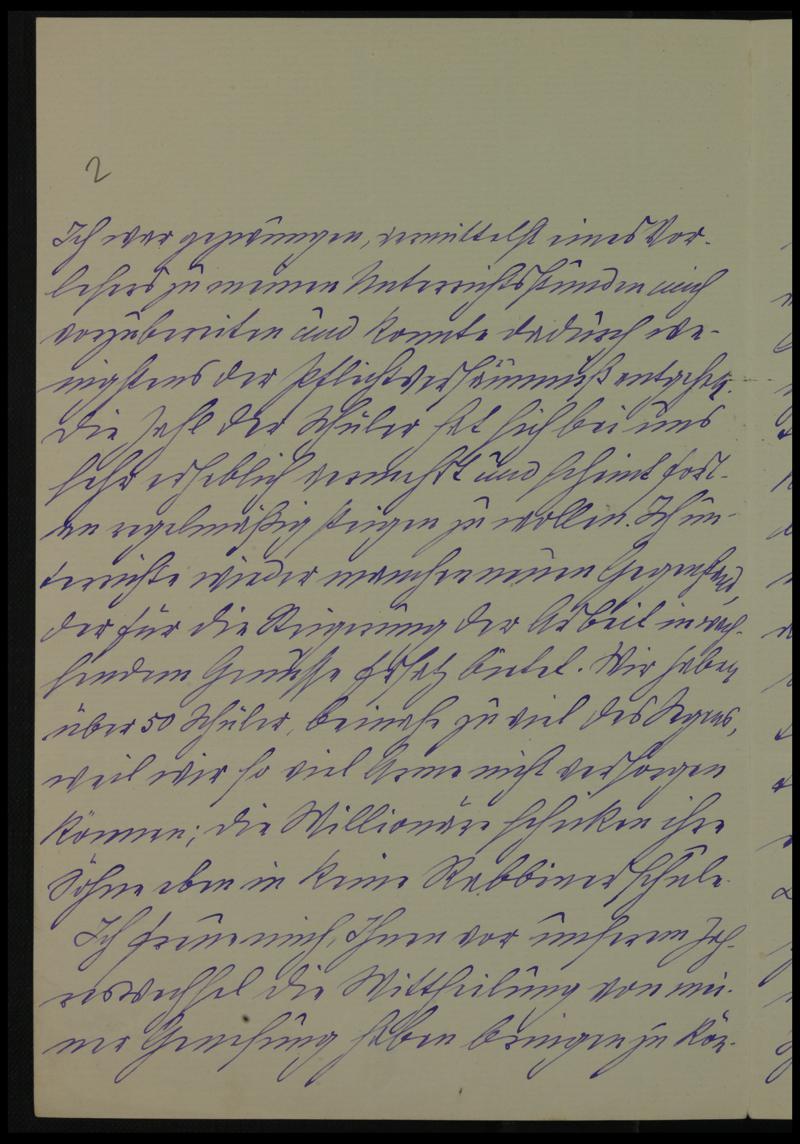 2
Ich war gezwungen, vermittelst eines Vor-
lesers zu meinen Unterrichtsstunden mich
vorzubereiten und konnte dadurch we-
nigstens der Pflichtversäumniß entgehen.
Die Zahl der Schüler hat sich bei uns
sehr erheblich vermehrt und scheint fort-
an regelmäßig steigen zu wollen. Ich un-
terrichte wieder manchen neuen Gegenstand,
der für die Steigerung der Arbeit in
Genusse Ersatz bietet. Wir haben
über 50 Schüler, beinahe zu viel des Segens,
weil wir so viel Arme nicht versorgen
können; die Millionäre schicken ihre
Söhne eben in keine Rabbinerschule.
Ich freue mich, Ihnen vor unserem Jah-
reswechsel die Mittheilung von mei-
ner Genesung haben bringen zu kön-